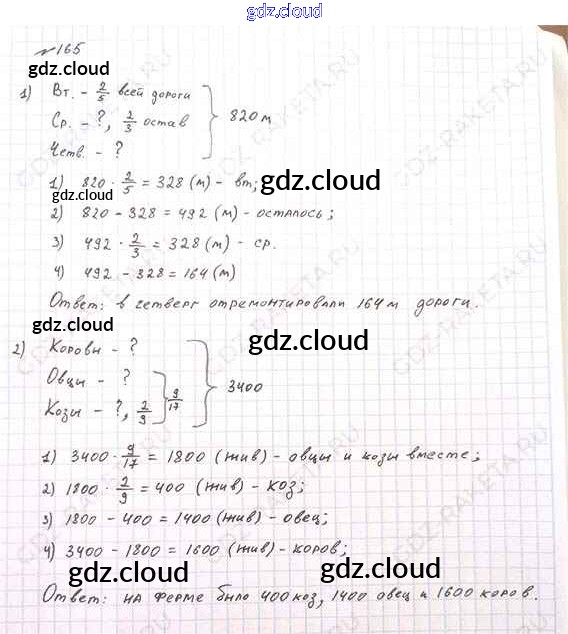 gdz.cloud
№165
gdz.cloud
1) Вт. - 2/5 всей дороги
Ср. - ?, 2/3 остав } 820 м
Четв. - ?
1) 820 · 2/5 = 328 (м) - вт; gdz.cloud
gdz.cloud
2) 820 - 328 = 492 (м) - осталось;
3) 492 · 2/3 = 328 (м) - ср.
4) 492 - 328 = 164 (м)
Ответ: в четверг отремонтировали 164 м дороги.
gdz.cloud gdz.cloud
2) Коровы - ?
Овцы - ? } 9/17 } 3400
Козы - ?, 2/9
1) 3400 · 9/17 = 1800 (жив) - овцы и козы вместе;
2) 1800 · 2/9 = 400 (жив) - коз; gdz.cloud
3) 1800 - 400 = 1400 (жив) - овец;
4) 3400 - 1800 = 1600 (жив) - коров;
gdz.cloud gdz.cloud
Ответ: на ферме было 400 коз, 1400 овец и 1600 коров.
GDZ-RAKETA.RU